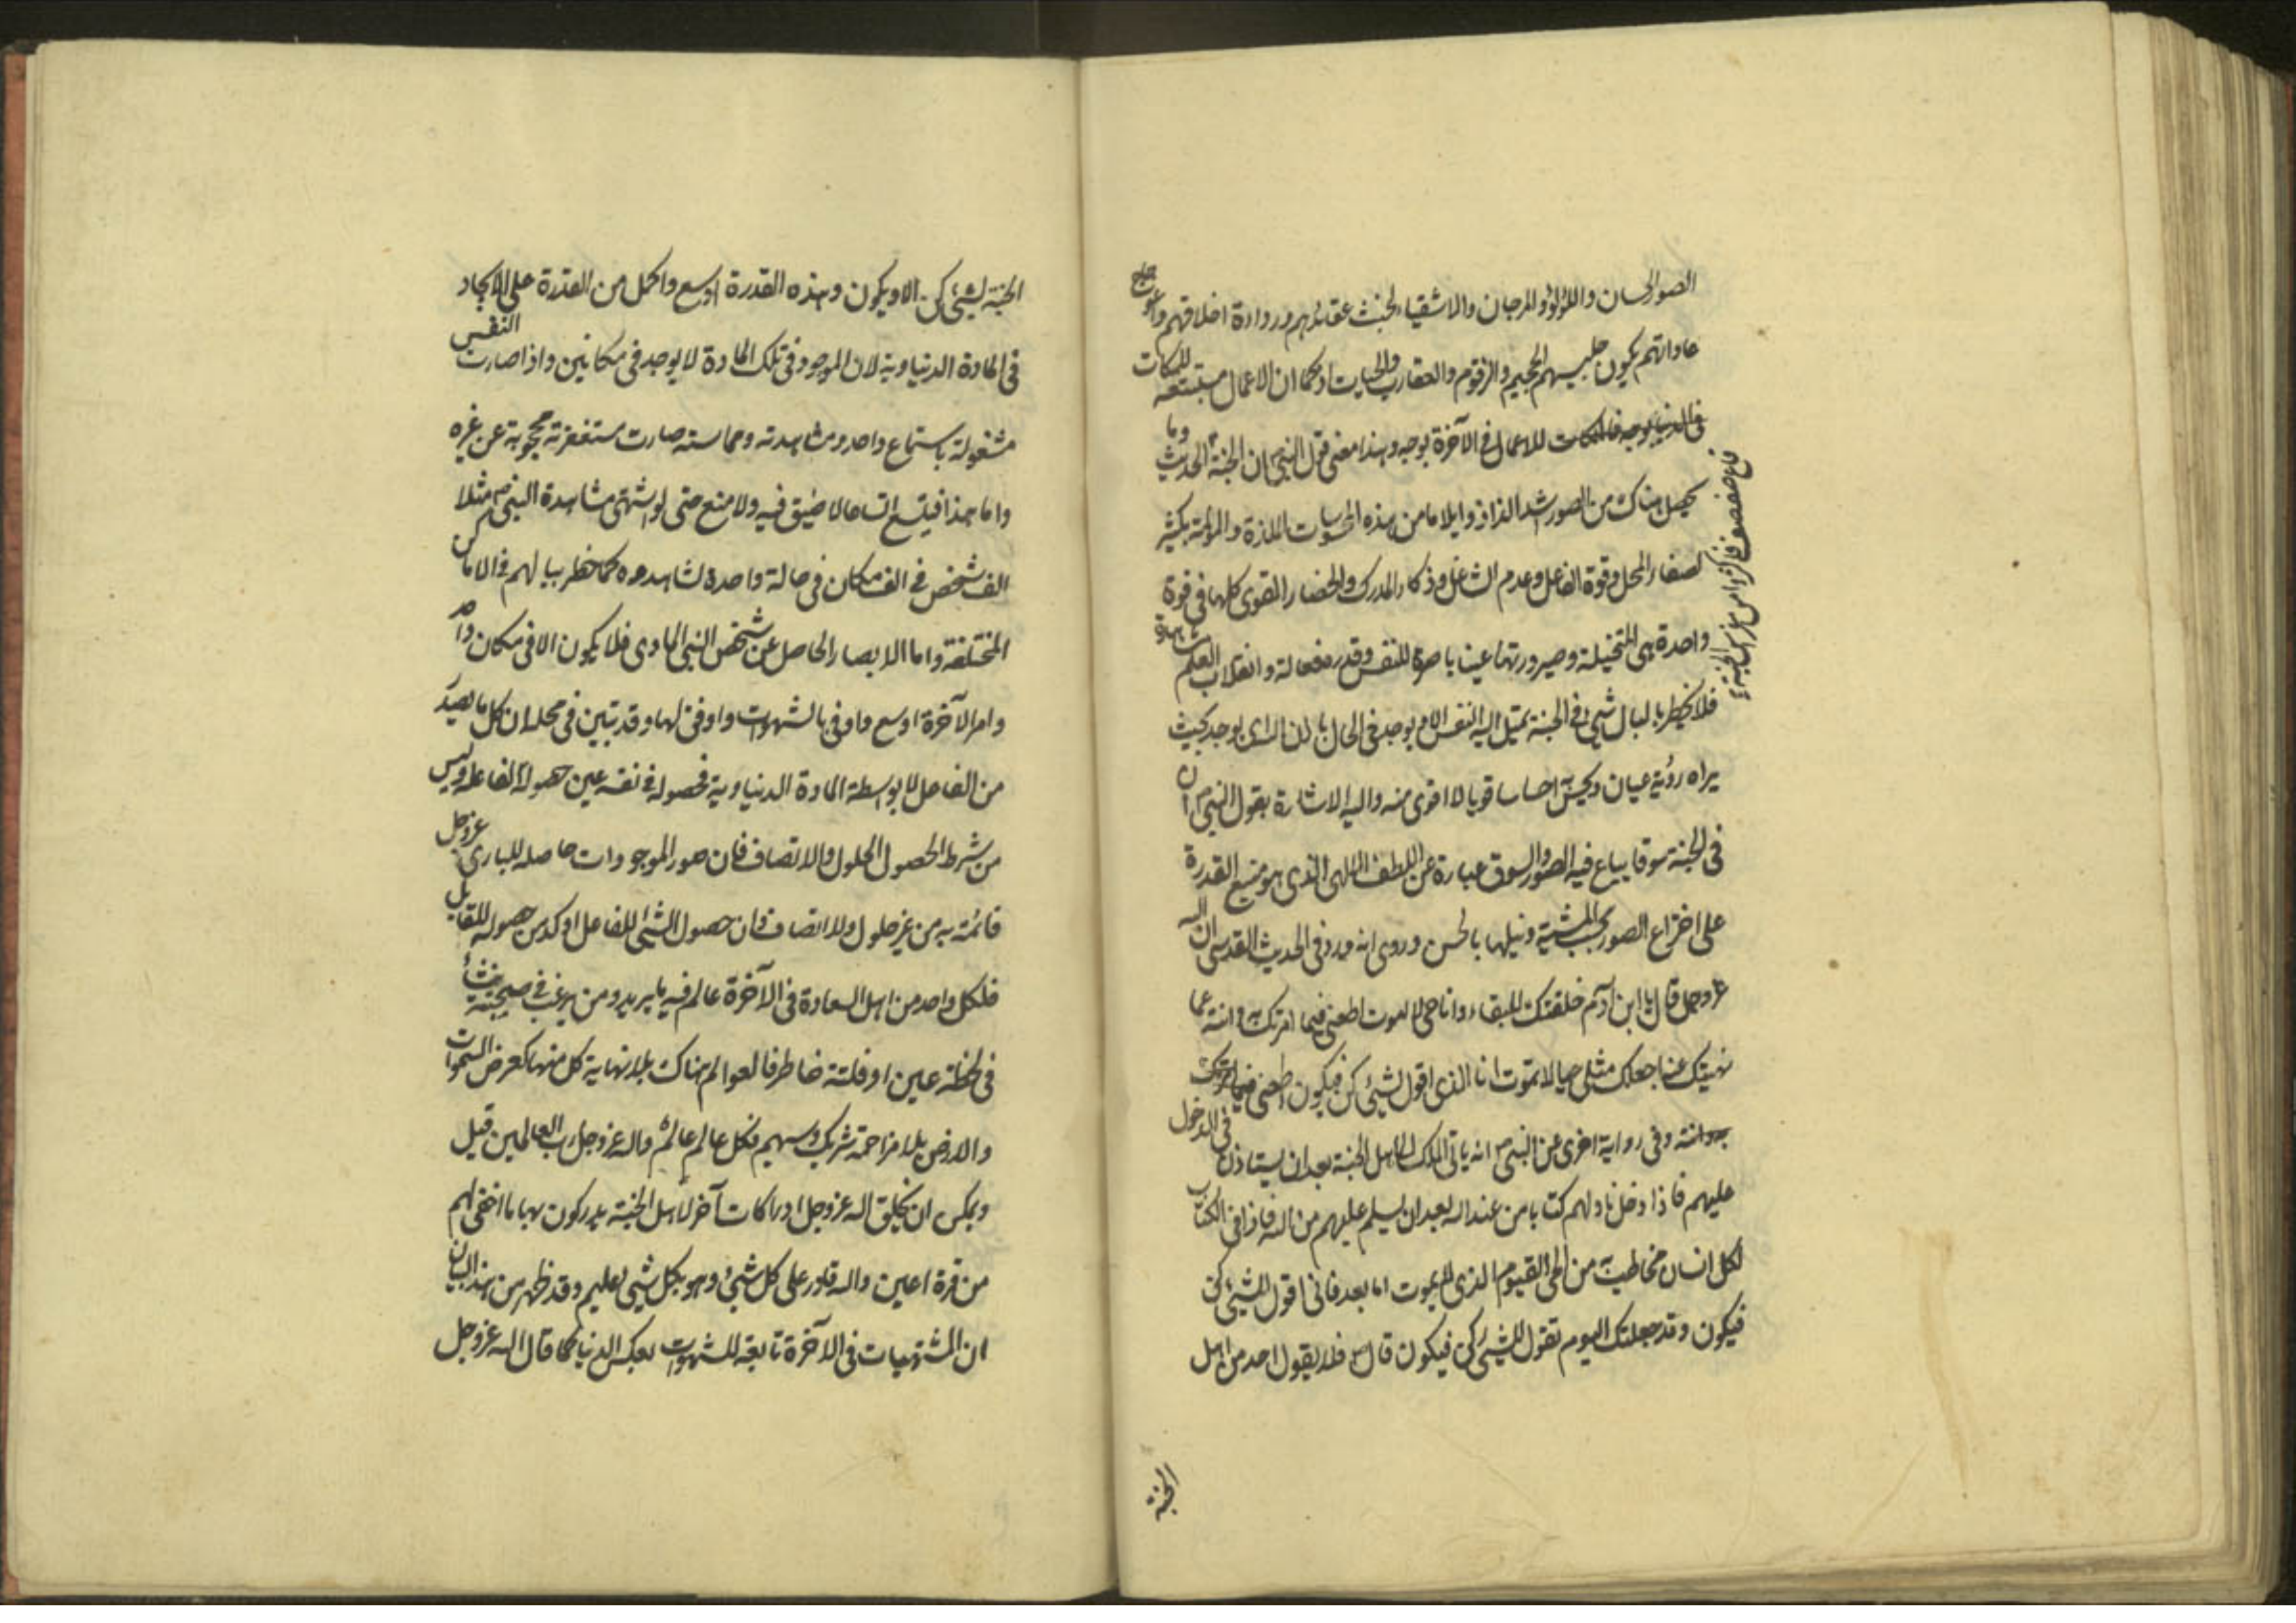 الصور الحسان واللؤلؤ والمرجان والاشقياء لخبث عقائدهم ورداءة اخلاقهم واعوجاج
عاداتهم يكون جليسهم الجحيم والزقوم والعقارب والحيات اذ كما ان الاعمال مستتبعة للملكات
في الدنيا بوجه فالملكات للاعمال في الآخرة بوجه وهذا معنى قول النبي ص ان الجنة الحديث وما
قاع صفصف فاكثروا من غراس الجنة
يحصل هناك من الصور اشد الذاذا وايلاما من هذه المحسوسات الملذة والمؤلمة بكثير
لصفاء المحل وقوة الفاعل وعدم الشاغل وذكاء المدرك وانحصار القوى كلها في قوة
واحدة هي المتخيلة وصيرورتها عينا باصرة للنفس وقدرة فعالة وانقلاب العلم مشاهدة
فلا يخطر بالبال شيء في الجنة يميل اليه النفس الا ويوجد في الحال باذن الله اي يوجد بحيث
يراه رؤية عيان ويحس به احساسا قويا لا اقوى منه واليه الاشارة بقول النبي ص ان
في الجنة سوقا يباع فيه الصور والسوق عبارة عن اللطف الالهي الذي هو منبع القدرة
على اختراع الصور بحسب المشية ونيلها بالحس وروى انه ورد في الحديث القدسي ان الله
عز وجل قال يا ابن آدم خلقتك للبقاء وانا حي لا اموت اطعني فيما امرتك به وانته عما
نهيتك عنه اجعلك مثلي حيا لا تموت انا الذي اقول لشيء كن فيكون اطعني فيما امرتك
به وانته وفي رواية اخرى عن النبي ص انه يأتي الملك الى اهل الجنة بعد ان يستأذن في الدخول
عليهم فاذا دخل ناولهم كتابا من عند الله بعد ان يسلم عليهم من الله فاذا في الكتاب
لكل انسان مخاطب به من الحي القيوم الذي لا يموت اما بعد فاني اقول للشيء كن
فيكون وقد جعلتك اليوم تقول للشيء كن فيكون قال ص فلا يقول احد من اهل
الجنة
الجنة لشيء كن الا ويكون وهذه القدرة اوسع واكمل من القدرة على الايجاد
في المادة الدنياوية لان الموجود في تلك المادة لا يوجد في مكانين واذا صارت النفس
مشغولة باستماع واحد ومشاهدته ومماسته صارت مستغرقة محجوبة عن غيره
واما هذا فيتسع اتساعا لا ضيق فيه ولا منع حتى لو اشتهى مشاهدة النبي ص مثلا
الف شخص في الف مكان في حالة واحدة لشاهدوه كما خطر ببالهم في الاماكن
المختلفة واما الابصار الحاصل عن شخص النبي المادي فلا يكون الا في مكان واحد
وامر الآخرة اوسع واوفى بالشهوات واوفق لها وقد تبين في محله ان كل ما يصدر
من الفاعل لا بواسطة المادة الدنياوية فحصوله في نفسه عين حصوله لفاعله وليس
من شرط الحصول الحلول والاتصاف فان صور الموجودات حاصلة للباري عز وجل
قائمة به من غير حلول ولا اتصاف وان حصول الشيء للفاعل اوكد من حصوله للقابل
فلكل واحد من اهل السعادة في الآخرة عالم فيه ما يريد ومن يرغب في صحبته ينشأ
في لحظة عين او فلتة خاطر فالعوالم هناك بلا نهاية كل منها كعرض السموات
والارض بلا مزاحمة شريك وسهيم فكل عالم عالم والله عز وجل رب العالمين قيل
ويمكن ان يخلق الله عز وجل ادراكات آخر لاهل الجنة يدركون بها ما اخفي لهم
من قرة اعين والله قادر على كل شيء وهو بكل شيء عليم وقد ظهر من هذا البيان
ان المشتهيات في الآخرة تابعة للشهوات بعكس الدنيا كما قال الله عز وجل